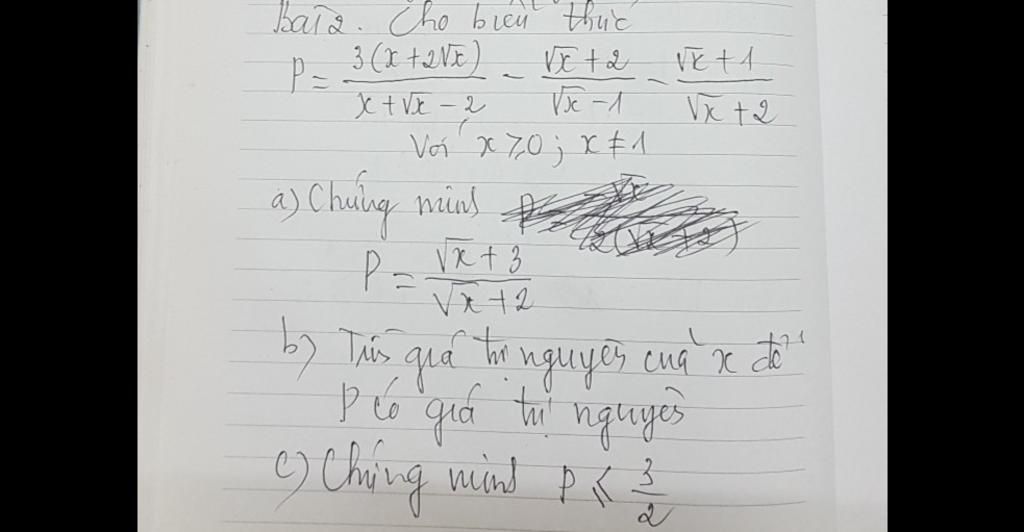 Bài 2. Cho biểu thức
P = 3(x + 2√x) / (x + √x - 2) - (√x + 2) / (√x - 1) - (√x + 1) / (√x + 2)
Với x ⩾ 0; x ≠ 1
a) Chứng minh
P = (√x + 3) / (√x + 2)
b) Tìm giá trị nguyên của x để
P có giá trị nguyên
c) Chứng minh P ⩽ 3/2